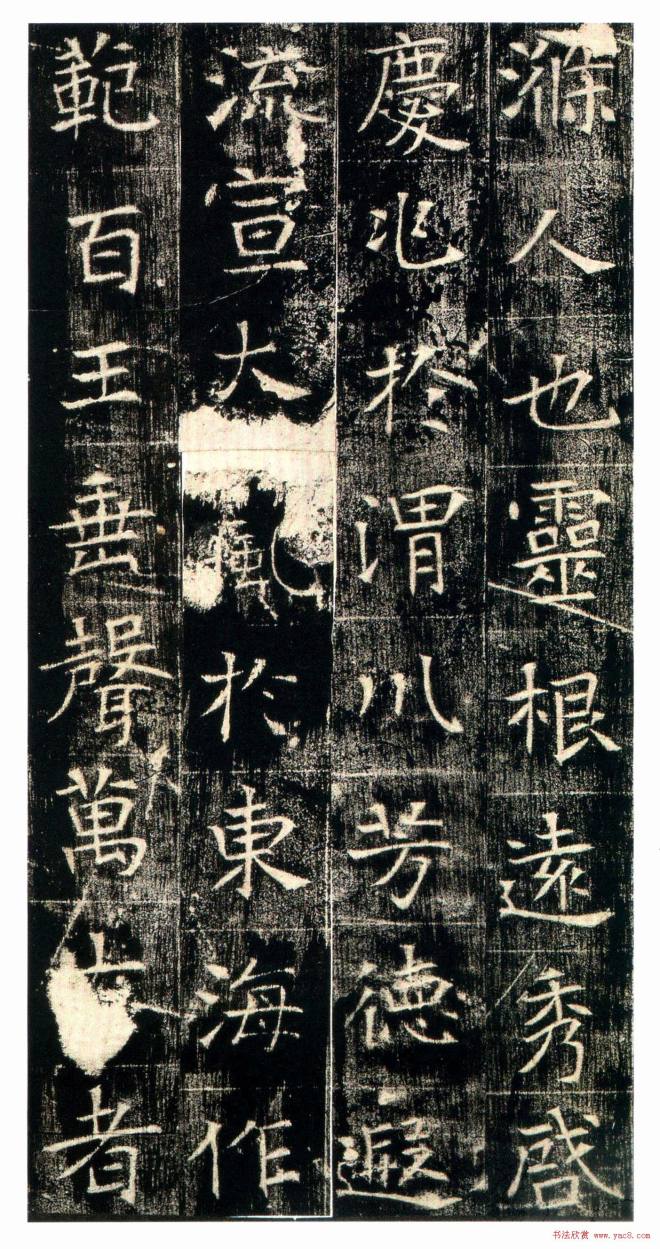 滌人也靈根遠秀啓
慶兆於渭川芳德遐
流宣大風於東海作
範百王垂聲萬者
书法欣赏 www.yac8.com